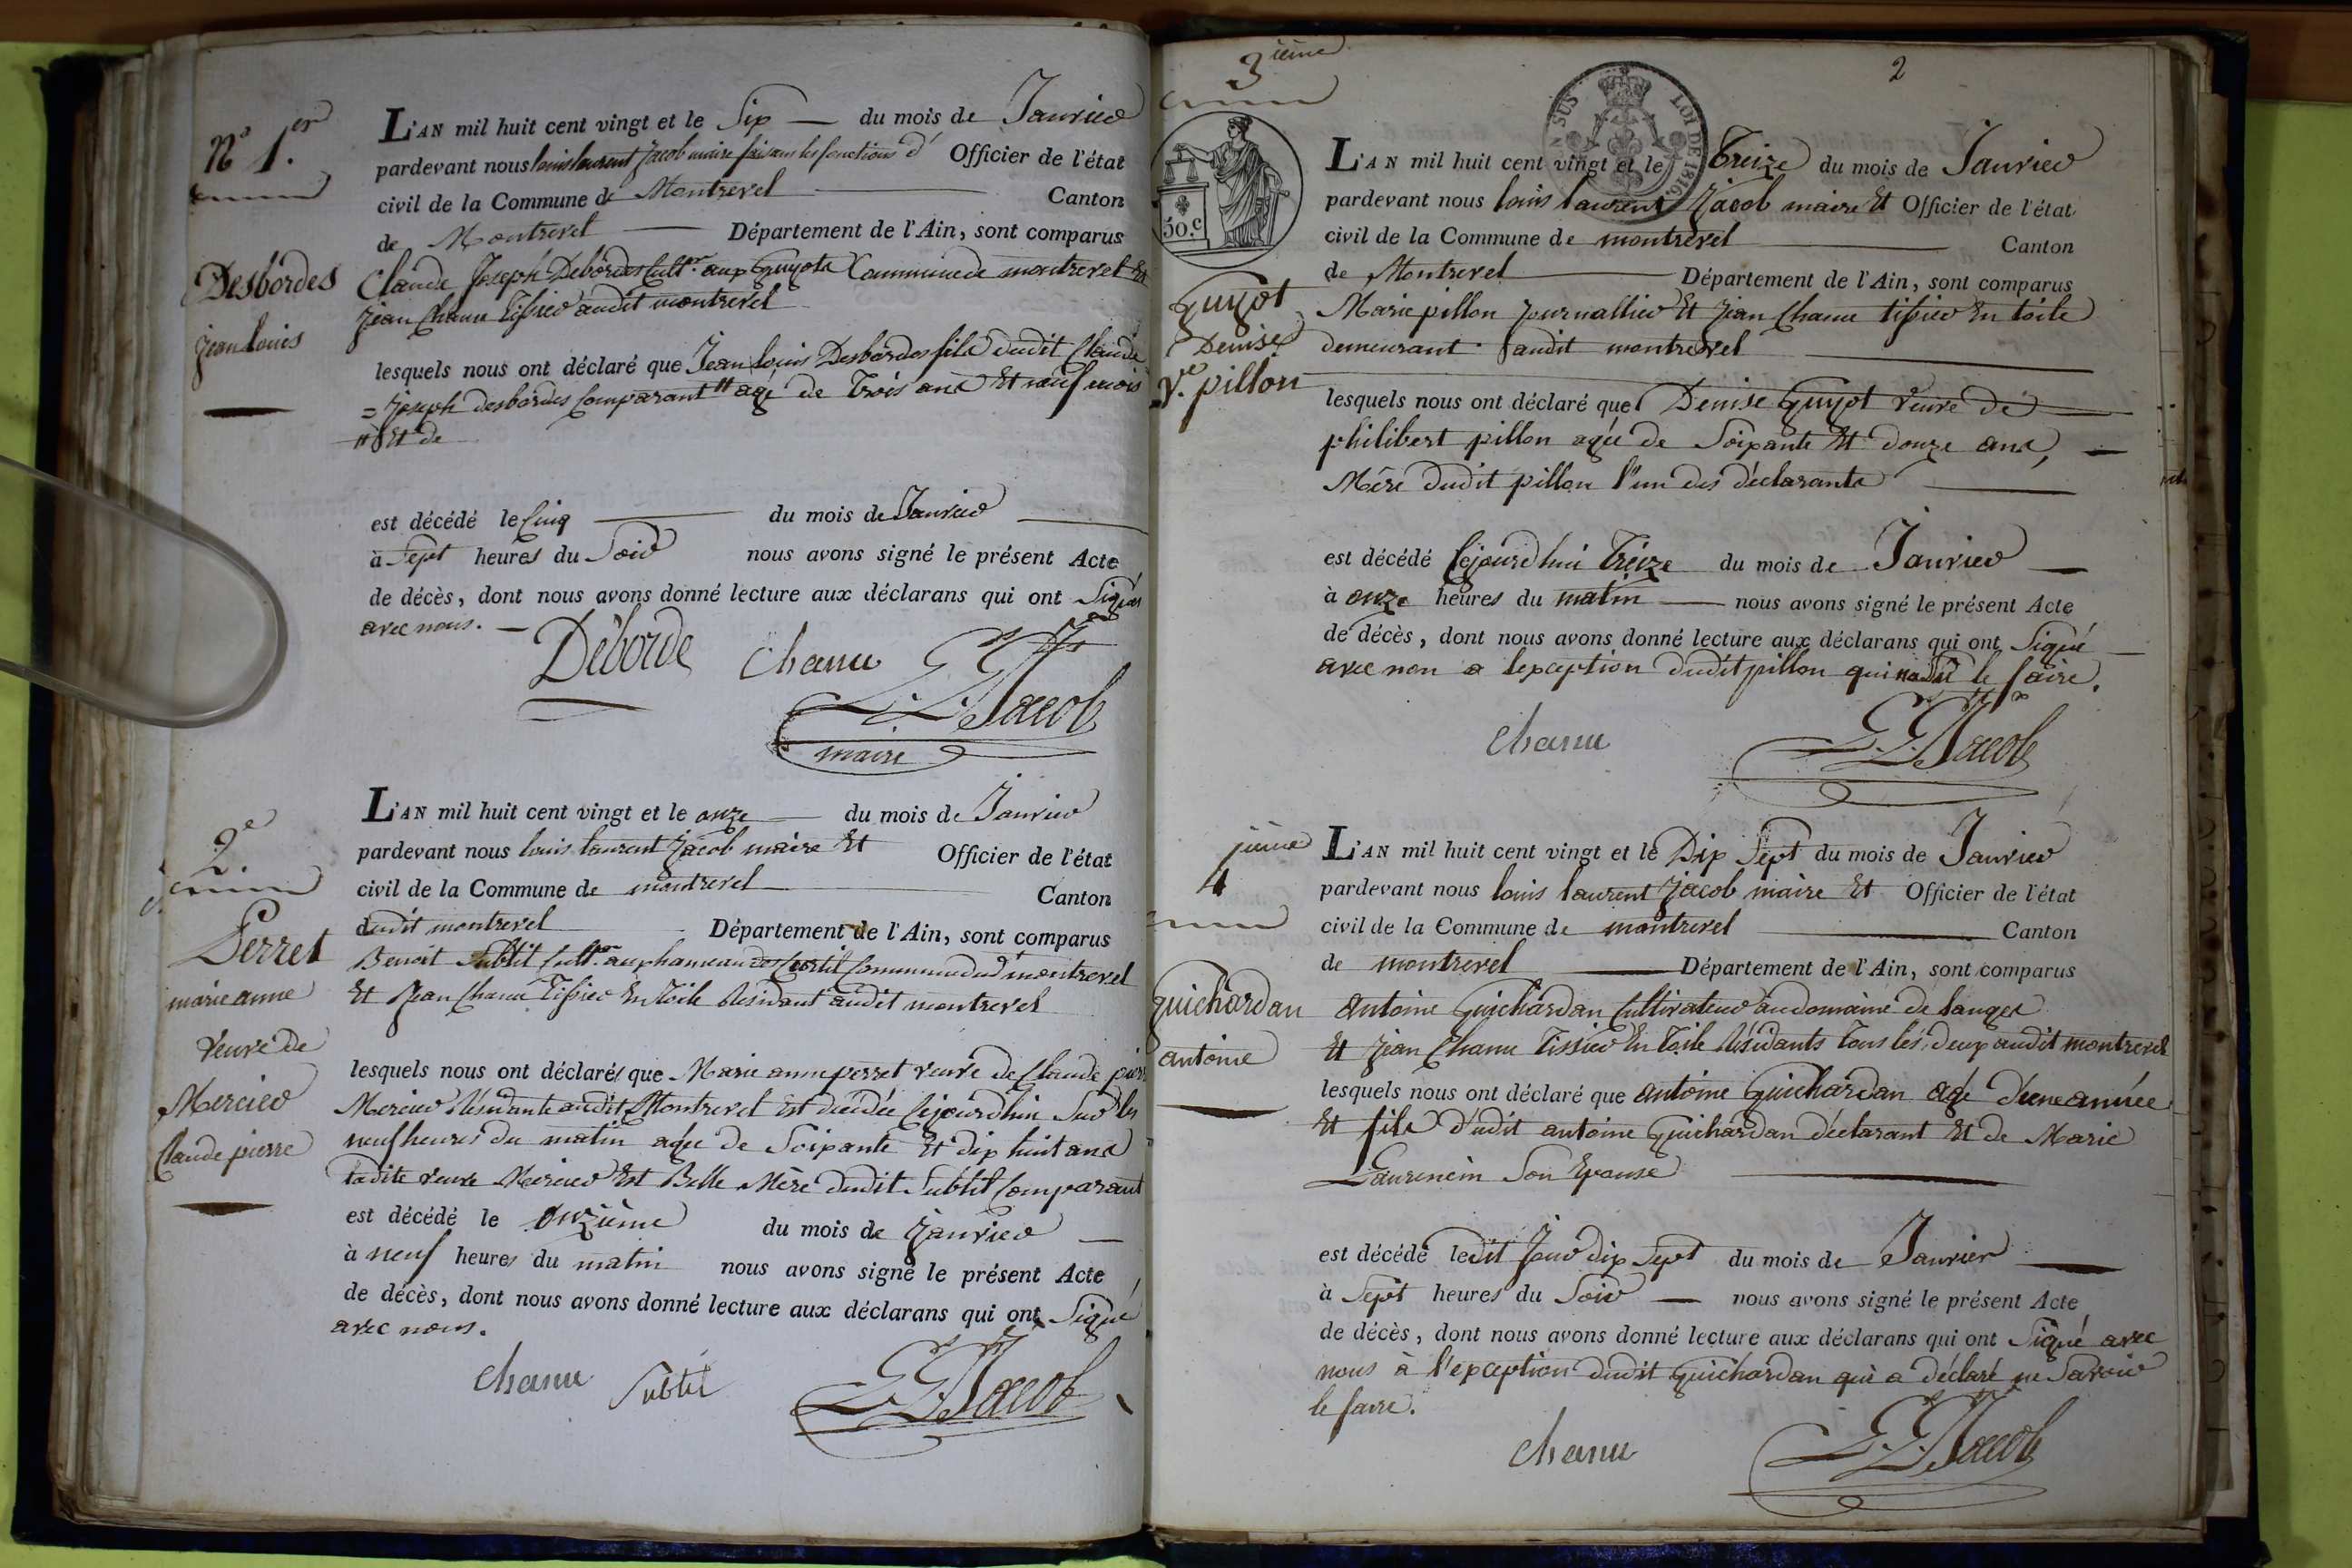 N° 1.er
Desbordes
jean louis
L'AN mil huit cent vingt et le Six du mois de Janvier
pardevant nous louis laurent Jacob maire faisant les fonctions d' Officier de l'état
civil de la Commune de Montrevel Canton
de Montrevel Département de l'Ain, sont comparus
Claude Joseph Debordes Cult.r aux Guyots Commune de montrevel Et
jean Chanu Tissier audit montrevel
lesquels nous ont déclaré que Jean Louis Desbordes fils dudit Claude
= Joseph desbordes Comparant " agé de Trois ans Et neuf mois
" Et de
est décédé le Cinq du mois de Janvier
à Sept heures du Soir nous avons signé le présent Acte
de décès, dont nous avons donné lecture aux déclarans qui ont Signés
avec nous.
Déborde Chanu L.L. Jacob
maire
2.e
Perret
marie anne
veuve de
Mercier
Claude pierre
L'AN mil huit cent vingt et le onze du mois de Janvier
pardevant nous louis laurent Jacob maire Et Officier de l'état
civil de la Commune de montrevel Canton
dudit montrevel Département de l'Ain, sont comparus
Benoit Subtil Cult.r au hameau des Curtil Commune dud montrevel
Et Jean Chanu Tissier En Toile Résidant audit montrevel
lesquels nous ont déclarés que Marie anne perret veuve de Claude pierre
Mercier Résidante audit Montrevel Est décédée Cejourdhui Sur les
neuf heures du matin agée de Soixante Et dix huit ans
ladite veuve Mercier Est Belle Mère dudit Subtil Comparant
est décédé le onzième du mois de janvier
à neuf heures du matin nous avons signé le présent Acte
de décès, dont nous avons donné lecture aux déclarans qui ont Signé
avec nous.
Chanu Subtil L.L. Jacob
3ieme
2
SUS LOI DE 1816
50.c
Guyot
Denise
V.e pillon
L'AN mil huit cent vingt et le Treize du mois de Janvier
pardevant nous louis laurent Jacob maire Et Officier de l'état
civil de la Commune de montrevel Canton
de Montrevel Département de l'Ain, sont comparus
Marie pillon Journallier Et Jean Chanu tissier En toile
demeurant audit montrevel
lesquels nous ont déclaré que Denise Guyot veuve de
philibert pillon agée de Soixante Et douze ans,
Mère dudit pillon l'un des déclarants
est décédé Cejourdhui Treize du mois de Janvier
à onze heures du matin nous avons signé le présent Acte
de décès, dont nous avons donné lecture aux déclarans qui ont Signé
avec nou a lexception dudit pillon qui na Su le faire.
Chanu L.L. Jacob
4 jième
Guichardan
antoine
L'AN mil huit cent vingt et le Dix Sept du mois de Janvier
pardevant nous louis laurent Jacob maire Et Officier de l'état
civil de la Commune de montrevel Canton
de montrevel Département de l'Ain, sont comparus
antoine Guichardan Cultivateur au domaine de langes
Et Jean Chanu Tissier En Toile Résidants Tous les deux audit montrevel
lesquels nous ont déclaré que antoine Guichardan agé d'une année
Et fils d'udit antoine Guichardan déclarant Et de Marie
Laurencin Son Epouse
est décédé ledit Jour dix Sept du mois de Janvier
à Sept heures du Soir nous avons signé le présent Acte
de décès, dont nous avons donné lecture aux déclarans qui ont Signé avec
nous à l'exception dudit Guichardan qui a déclaré ne Savoir
le faire.
Chanu L.L. Jacob